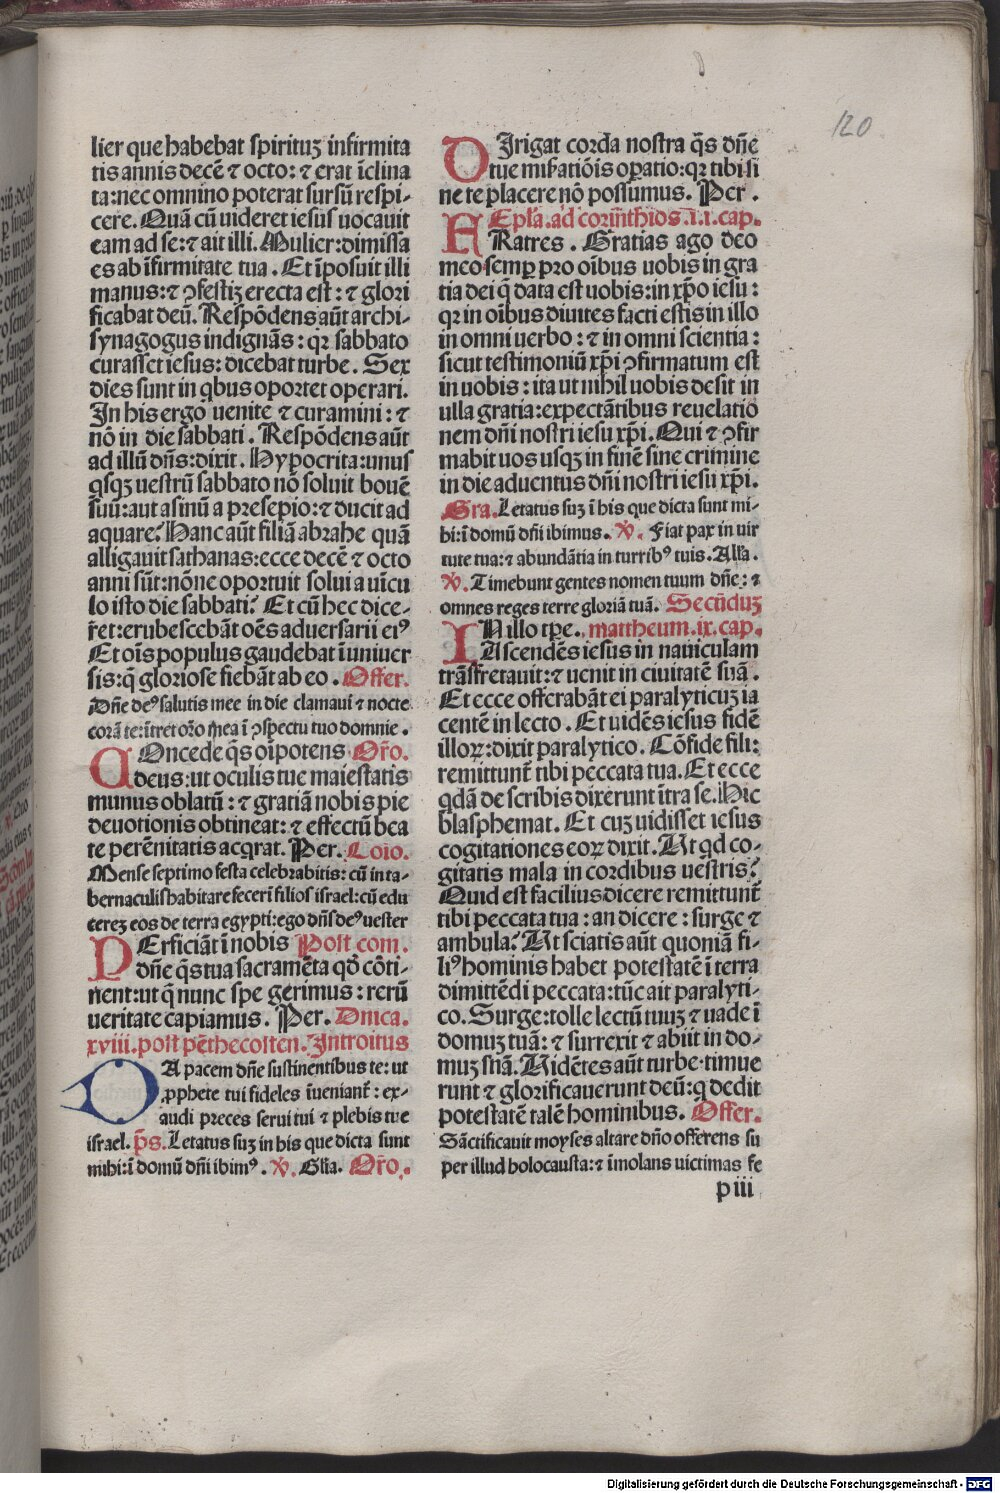 120
lier que habebat spirituꝫ infirmita
tis annis decē ⁊ octo: ⁊ erat īclina
ta: nec omnino poterat sursū respi-
cere. Quā cū uideret iesus uocauit
eam ad se: ⁊ ait illi. Mulier: dimissa
es ab īfirmitate tua. Et īposuit illi
manus: ⁊ ꝯfestiꝫ erecta est: ⁊ glori
ficabat deū. Respōdens aūt archi-
synagogus indignās: qꝛ sabbato
curasset iesus: dicebat turbe. Sex
dies sunt in qbus oportet operari.
In his ergo uenite ⁊ curamini: ⁊
nō in die sabbati. Respōdens aūt
ad illū dn̄s: dixit. Hypocrita: unus
qsqꝫ uestrū sabbato nō soluit bouē
suū: aut asinū a presepio: ⁊ ducit ad
aquare? Hanc aūt filiā abrahe quā
alligauit sathanas: ecce decē ⁊ octo
anni sūt: nōne oportuit solui a uīcu
lo isto die sabbati? Et cū hec dice-
r̄et: erubescebāt oēs aduersarii eiꝰ
Et oīs populus gaudebat ī uniuer
sis: q̄ gloriose fiebāt ab eo. Offer.
Dn̄e deꝰ salutis mee in die clamaui ⁊ nocte
corā te: ītret or̄o mea ī ꝯspectu tuo domine.
COncede q̄s oīpotens Or̄o.
deus: ut oculis tue maiestatis
munus oblatū: ⁊ gratiā nobis pie
deuotionis obtineat: ⁊ effectū bea
te perēnitatis acqrat. Per. Cōio.
Mense septimo festa celebrabitis: cū in ta-
bernaculis habitare fecerī filios israel: cū edu
cereꝫ eos de terra egypti: ego dn̄s deꝰ uester
PErficiāt ī nobis Post com.
dn̄e q̄s tua sacramēta qđ cōti-
nent: ut q̄ nunc spe gerimus: rerū
ueritate capiamus. Per. Dnica.
xviii. post pēthecosten. Introitus
DA pacem dn̄e sustinentibus te: ut
ꝓphete tui fideles īueniant̄: ex-
audi preces serui tui ⁊ plebis tue
israel. p̄s. Letatus suꝫ in his que dicta sunt
mihi: ī domū dn̄i ibimꝰ. ℣. Gl̄ia. Or̄o.
DIrigat corda nostra q̄s dn̄e
tue mis̄atiōis oꝑatio: qꝛ tibi si
ne te placere nō possumus. Per.
Epl̄a. ad corīnthios .i. i. cap.
FRatres. Gratias ago deo
meo semꝑ pro oībus uobis in gra
tia dei q̄ data est uobis: in xp̄o iesu:
qꝛ in oībus diuites facti estis in illo
in omni uerbo: ⁊ in omni scientia:
sicut testimoniū xp̄i ꝯfirmatum est
in uobis: ita ut nihil uobis desit in
ulla gratia: expectātibus reuelatiō
nem dn̄i nostri iesu xp̄i. Qui ⁊ ꝯfir
mabit uos usqꝫ in finē sine crimine
in die aduentus dn̄i nostri iesu xp̄i.
Gra. Letatus suꝫ ī his que dicta sunt mi-
hi: ī domū dn̄i ibimus. ℣. Fiat pax in uir
tute tua: ⁊ abundātia in turribꝰ tuis. All̄a.
℣. Timebunt gentes nomen tuum dn̄e: ⁊
omnes reges terre gloriā tuā. Secūduꝫ
IN illo tp̄e. mattheum. ix. cap.
Ascendēs iesus in nauiculam
trāsfretauit: ⁊ uenit in ciuitatē suā.
Et ecce offerabāt ei paralyticuꝫ ia
centē in lecto. Et uidēs iesus fidē
illoꝝ: dixit paralytico. Cōfide fili:
remittunt̄ tibi peccata tua. Et ecce
qdā de scribis dixerunt ītra se. Hic
blasphemat. Et cuꝫ uidisset iesus
cogitationes eoꝝ dixit. Ut qd co-
gitatis mala in cordibus uestris?
Quid est facilius dicere remittunt̄
tibi peccata tua: an dicere: surge ⁊
ambula? Ut sciatis aūt quoniā fi-
liꝰ hominis habet potestatē ī terra
dimittēdi peccata: tūc ait paralyti-
co. Surge: tolle lectū tuuꝫ ⁊ uade ī
domuꝫ tuā: ⁊ surrexit ⁊ abiit in do-
muꝫ suā. Uidētes aūt turbe: timue
runt ⁊ glorificauerunt deū: q dedit
potestatē talē hominibus. Offer.
Sāctificauit moyses altare dn̄o offerens su
per illud holocausta: ⁊ īmolans uictimas fe
p iii
Digitalisierung gefördert durch die Deutsche Forschungsgemeinschaft - DFG